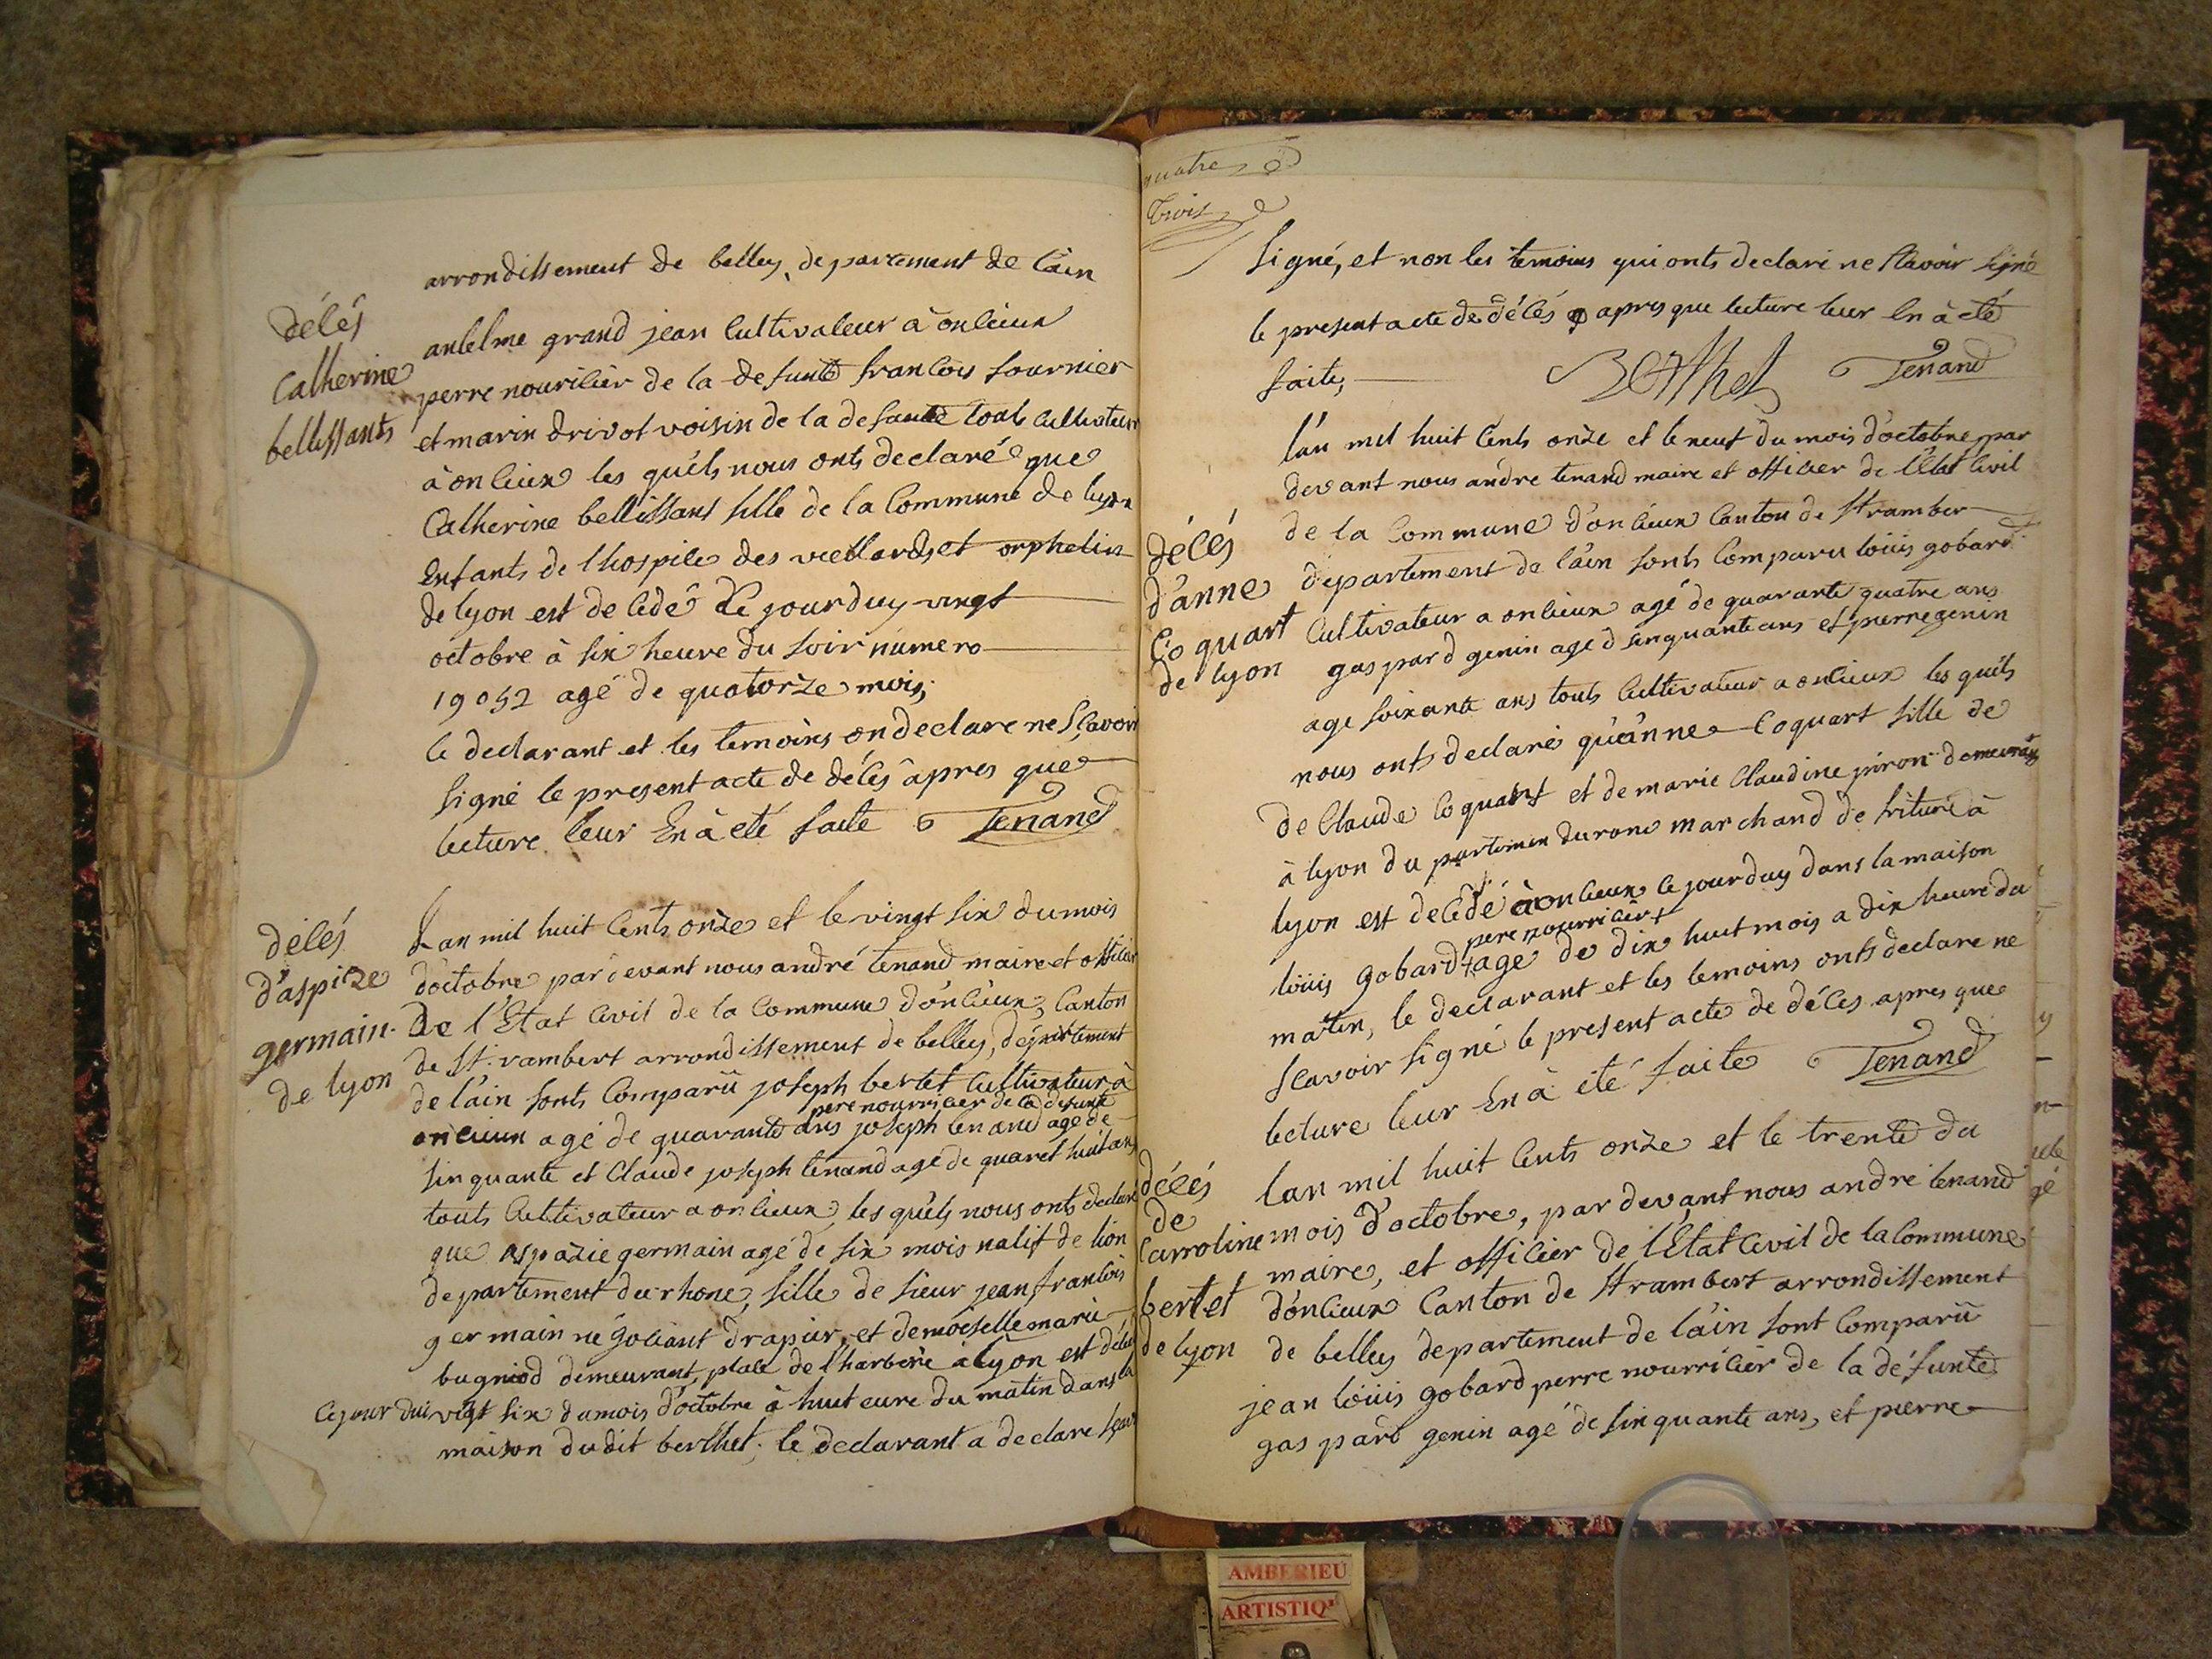 arrondissement de belley, departement de l'ain
délés
Catherine
bellissants
anselme grand jean Cultivateur à onlieux
perre nouricier de la defunte francois fournier
et marin drivot voisin de la defunte touts Cultivateur
à onlieux les quéls nous onts declaré que
Catherine bellissant fille de la Commune de lyon
Enfants de l'hospice des viellards et orphelin
de lyon est decedé Le jourduy vingt
octobre à six heure du soir numero
19052 agé de quatorze mois;
le declarant et les temoins on declare ne sçavoir
signé le present acte de délés apres que
lecture leur En à eté faite Tenand
délés
d'aspize
germain
de lyon
Lan mil huit Cents onze et le vingt six du mois
d'octobre par devant nous andré tenand maire et officier
De l'Etat Civil de la Commune d'onlieux, Canton
de St. rambert arrondissement de belley, département
de l'ain sonts Comparü joseph bertet Cultivateur à
pere nourricier de la defunte
onlieux agé de quarante ans joseph tenand agé de
sinquante et Claude joseph tenand agé de quaret huit ans
touts Cultivateur a onlieux, les quéls nous onts declaré
que aspazie germain agé de six mois natif de lion
departement du rhone, fille de sieur jean francois
germain négotiant drapier, et demoiselle marie
bugniod demeurant, place de l'harberie à lyon est décedé
Cejour dui vigt six du mois d'octobre à huit eure du matin dans la
maison du dit berthet. le declarant a declare sçavoir
quatre
Trois
signé, et non les temoins qui onts declaré ne sçavoir signé
le present acte de délés apres que lecture leur En à eté
faite, Berthet Tenand
délés
d'anne
Coquart
de lyon
l'an mil huit Cents onze et le neuf du mois d'octobre par
devant nous andre tenand maire et officier de l'Etat Civil
de la Commune d'onlieux Canton de St rambert
departement de l'ain sonts Comparu loüis gobard
Cultivateur a onlieux agé de quarante quatre ans
gaspard genin aged sinquante ans et pierre genin
age soixante ans touts Cultivateur a onlieux les quéls
nous onts declaré qu'anne Coquart fille de
de Claude Coquart et de marie Claudine piron demeurants
à lyon du partemen durone marchand de friture à
lyon est decedé à onlieux le jourduy dans la maison
pere nourricier +
loüis gobard + age de dix huit mois a dix heure du
matin, le declarant et les temoins onts declare ne
scavoir signé le present acte de délés apres que
lecture leur En à eté faite Tenand
délés
de
Carroline
bertet
de lyon
lan mil huit Cents onze et le trente du
mois d'octobre, par devant nous andré tenand
maire, et officier de l'Etat Civil de la Commune
d'onlieux Canton de St rambert arrondissement
de belley departement de l'ain sont Comparü
jean loüis gobard perre nourricier de la défunte
gaspard genin agé de sinquante ans, et pierre
AMBERIEU
ARTISTIQ